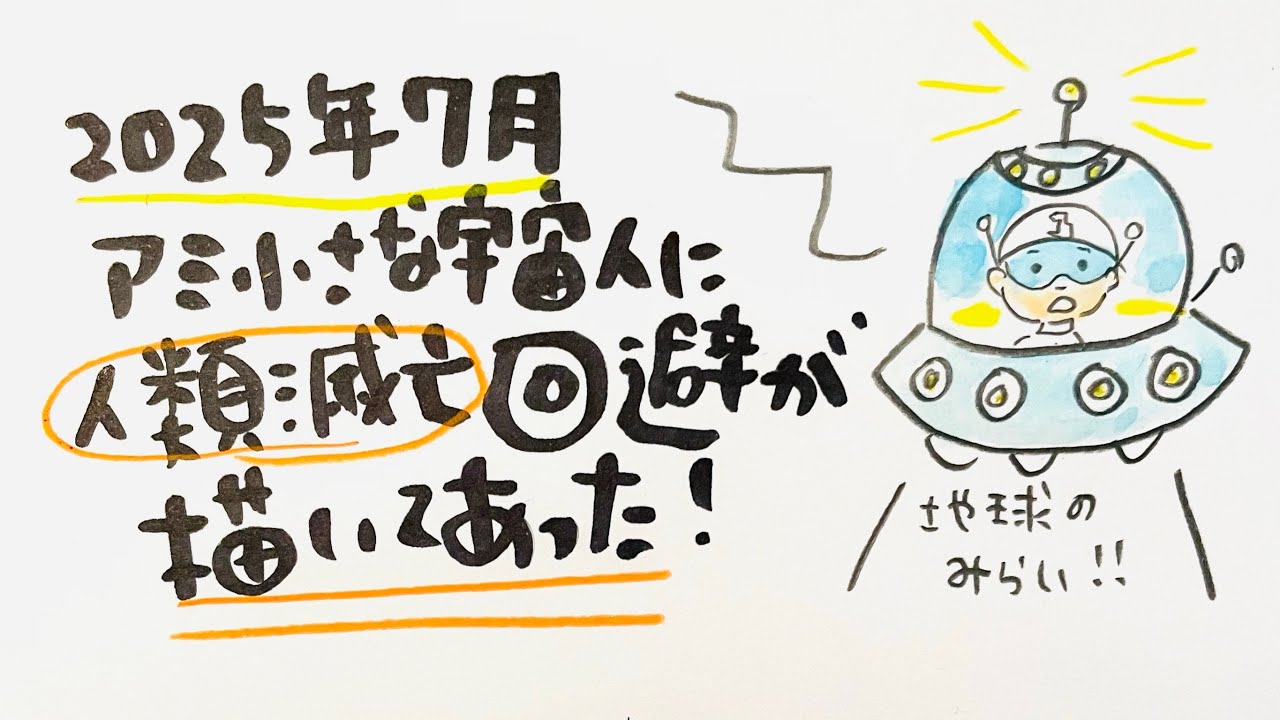 2025年7月
アミ小さな宇宙人に
人類滅亡回避が
描いてあった!
地球の
みらい!!